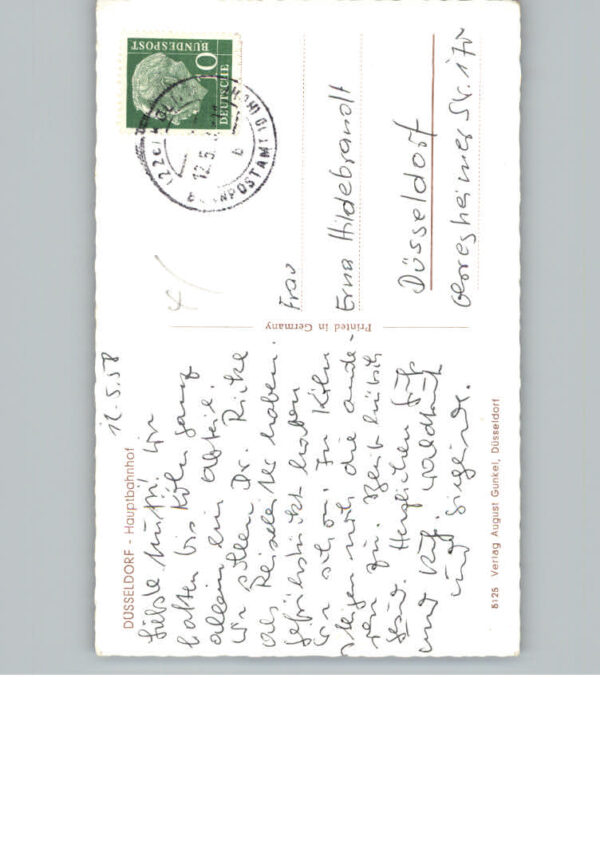 DÜSSELDORF - Hauptbahnhof
12.5.58
Liebste Mutti! Wir
hatten bis Köln ganz
allein ein Abteil.
Wir sollen Dr. Ricke
als Reiseleiter haben.
Gefrühstückt haben
wir schon. In Köln
steigen noch die ande-
ren zu. Bleib hübsch
gesund. Herzlichen Gruß
und Kuß Waldtraut
und Sieglinde.
5125 Verlag August Gunkel, Düsseldorf
Printed in Germany
DEUTSCHE
BUNDESPOST
10
BAHNPOSTAMT 10
12.5.
b
Frau
Erna Hildebrandt
Düsseldorf
Gerresheimer Str. 170